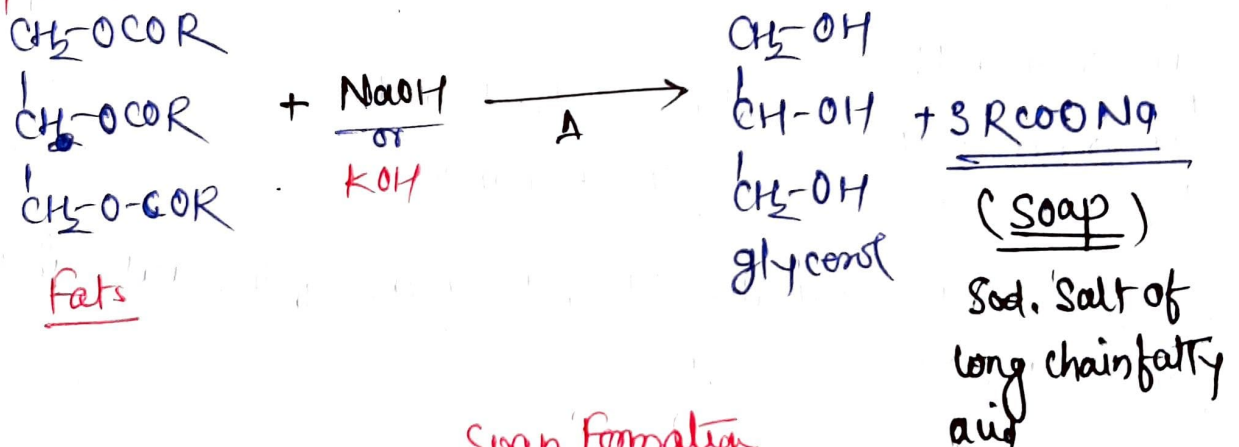 CH₂-OCOR
CH-OCOR
CH₂-O-COR
Fats
+ NaOH
or
KOH
Δ
CH₂-OH
CH-OH
CH₂-OH
glycerol
+ 3 RCOONa
(Soap)
Sod. Salt of
long chain fatty
acid
Soap Formation